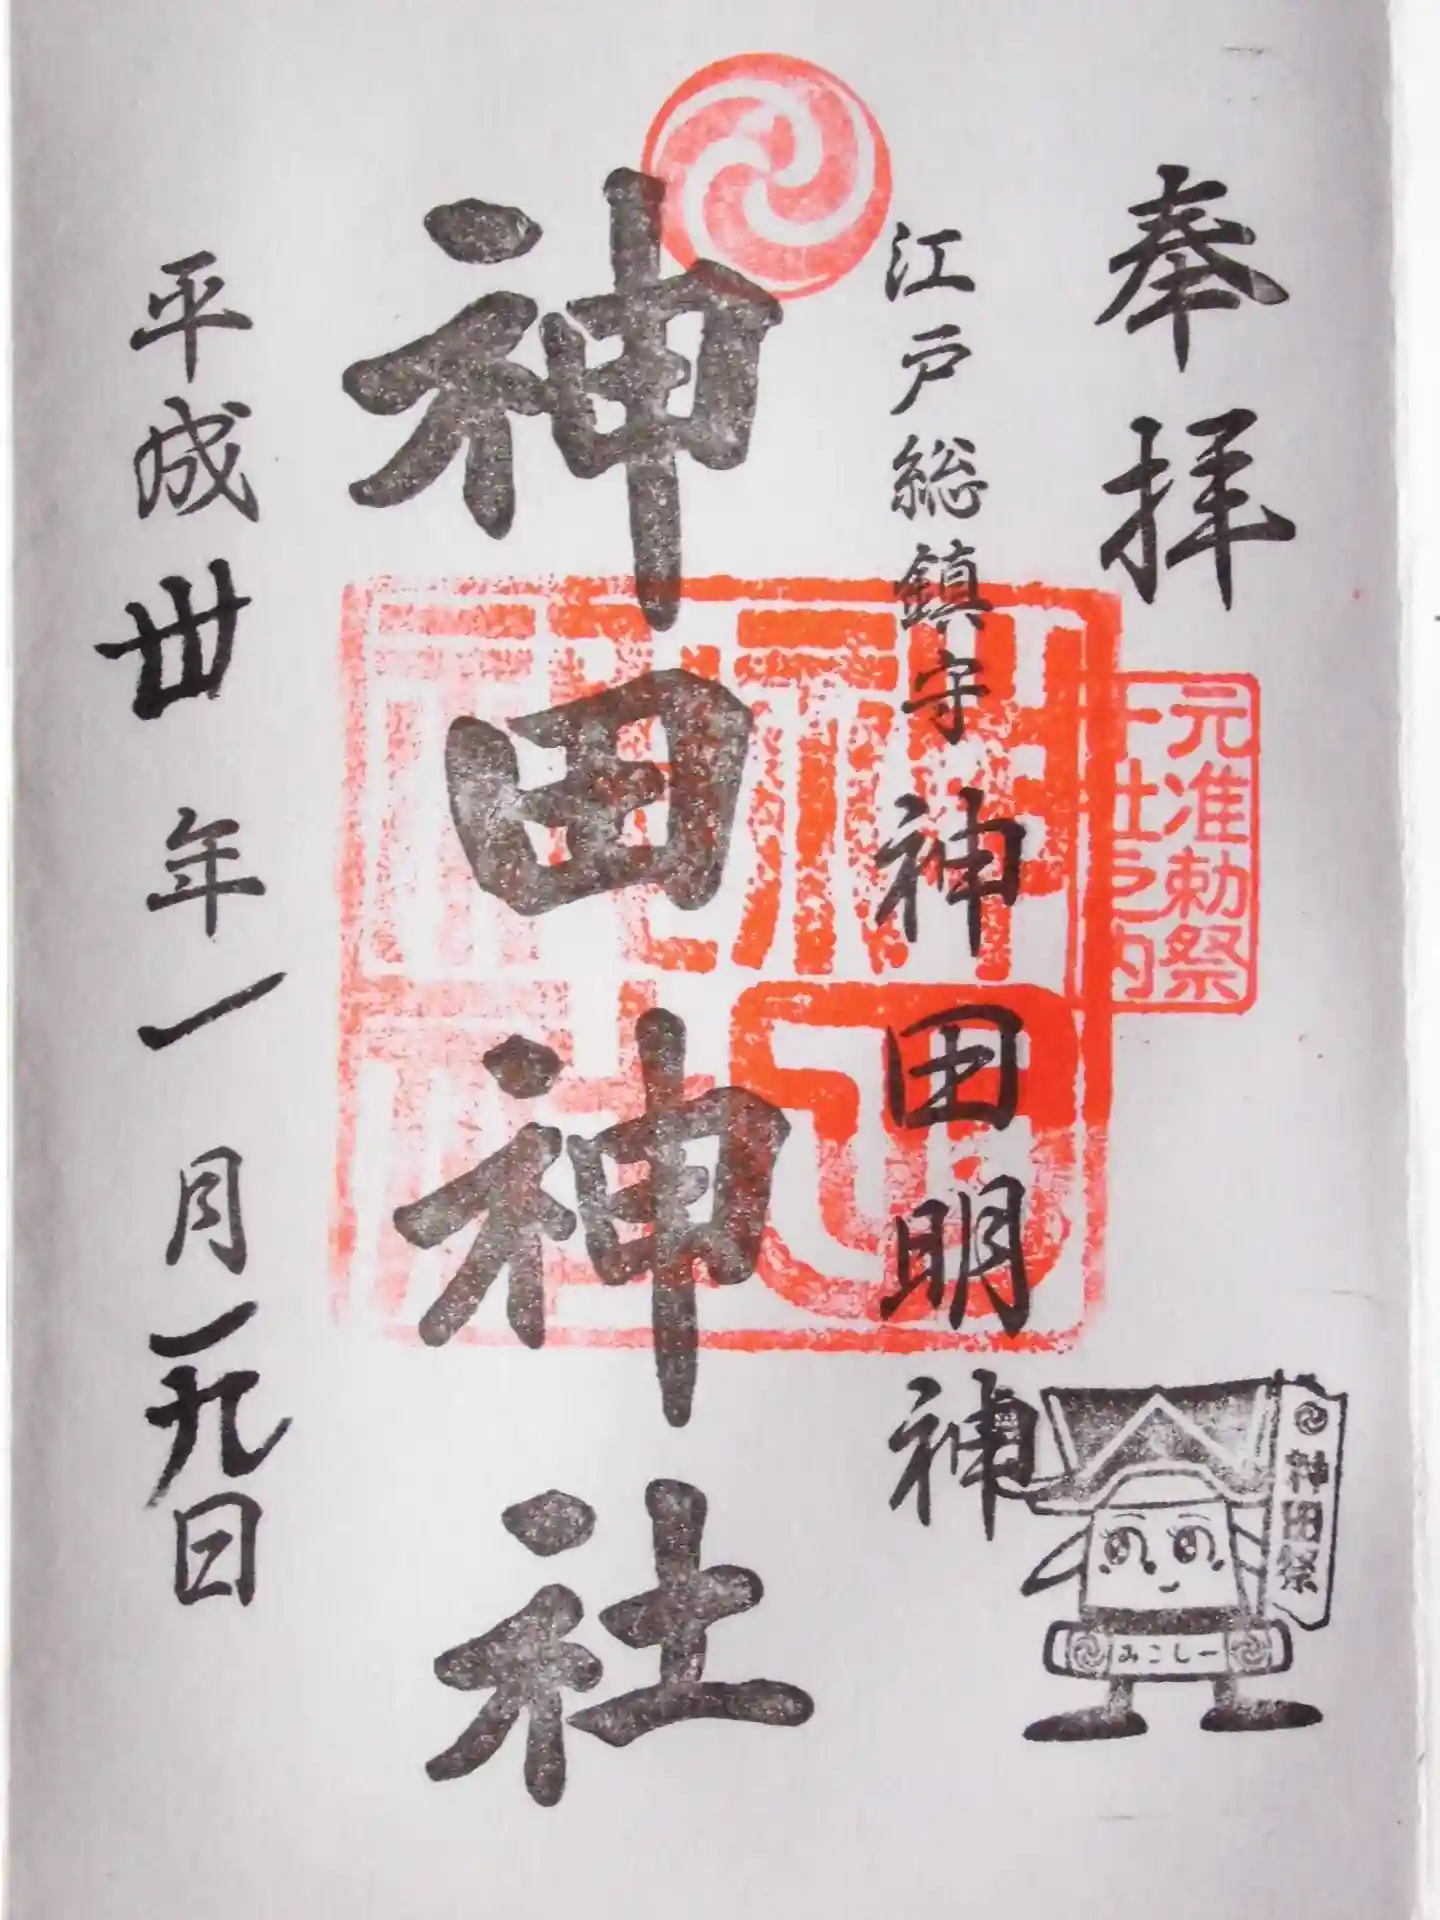 奉拝
元准勅祭
十社之内
江戸総鎮守 神田明神
神田神社
平成丗年一月一九日
神田祭
みこしー